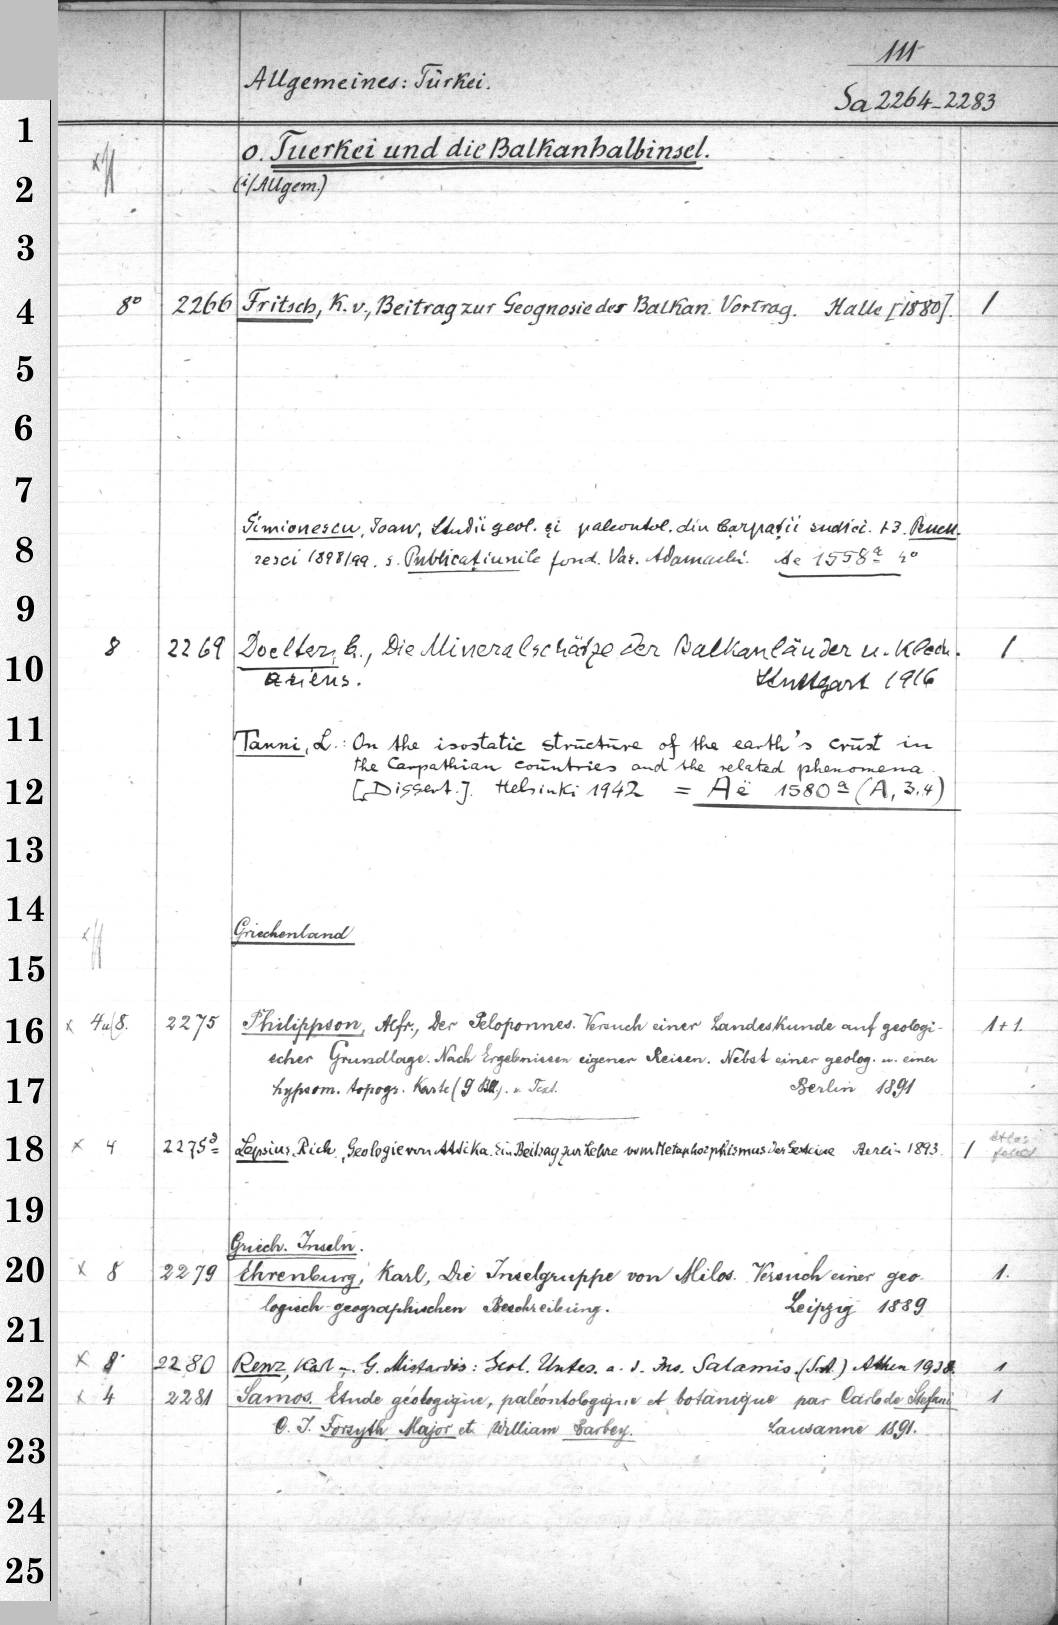 111
Allgemeines: Türkei.
Sa 2264-2283
1
o. Tuerkei und die Balkanhalbinsel.
2
(i/Allgem.)
3
4
8° 2266 Fritsch, K. v., Beitrag zur Geognosie des Balkan. Vortrag. Halle [1880]. 1
5
6
7
Simionescu, Joan, Studii geol. și paleontol. din Carpații sudici. 1-3.
8
1898/99. s. Publicațiunile fond. Vas. Adamachi. Ae 1558ª 4°
9
8 2269 Doelter, C., Die Mineralschätze der Balkanländer u. Klein- 1
10
asiens. Stuttgart 1916
11
Tanni, L.: On the isostatic structure of the earth's crust in
the Carpathian countries and the related phenomena.
12
[Dissert.]. Helsinki 1942 = Aë 1580ª (A, 3.4)
13
14
Griechenland
15
16
x 4u8. 2275 Philippson, Alfr., Der Peloponnes. Versuch einer Landeskunde auf geologi- 1+1.
scher Grundlage. Nach Ergebnissen eigener Reisen. Nebst einer geolog. u. einer
17
hypsom. topogr. Karte (9 Bll). u. Text. Berlin 1891
18
x 4 2275ª Lepsius, Rich., Geologie von Attika. Ein Beitrag zur Lehre vom Metamorphismus der Gesteine Berlin 1893. 1 Atlas
19
Griech. Inseln.
20
x 8 2279 Ehrenburg, Karl, Die Inselgruppe von Milos. Versuch einer geo- 1.
logisch-geographischen Beschreibung. Leipzig 1889
21
x 8° 2280 Renz, Karl u. G. Mistardis: Geol. Unters. a. d. Ins. Salamis. (S.A.) Athen 1938. 1
22
x 4 2281 Samos. Etude géologique, paléontologique et botanique par Carlo de Stefani 1
C. J. Forsyth Major et William Barbey. Lausanne 1891.
23
24
25